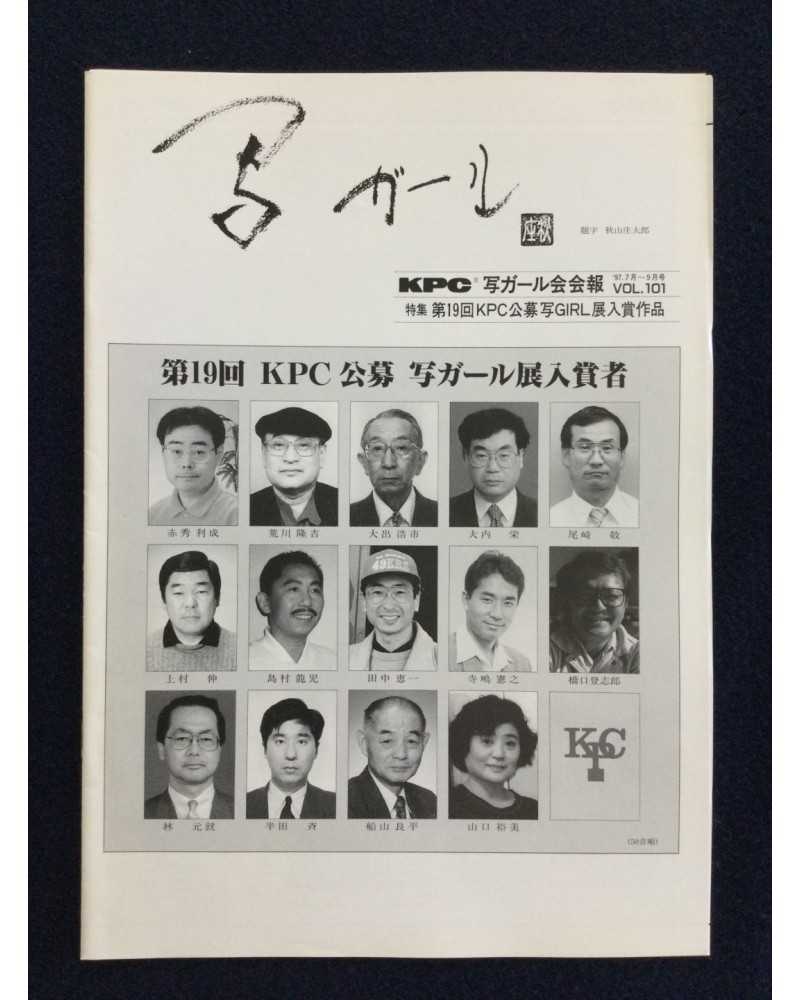 写ガール
題字 秋山庄太郎
KPC® 写ガール会会報 '97.7月〜9月号 VOL.101
特集 第19回KPC公募写GIRL展入賞作品
第19回 KPC公募 写ガール展入賞者
赤秀利成 荒川隆吉 大出浩市 大内 栄 尾崎 敬
上村 伸 島村龍児 田中恵一 寺嶋憲之 橋口登志郎
林 元 半田 斉 船山良平 山口裕美
KPC
(50音順)